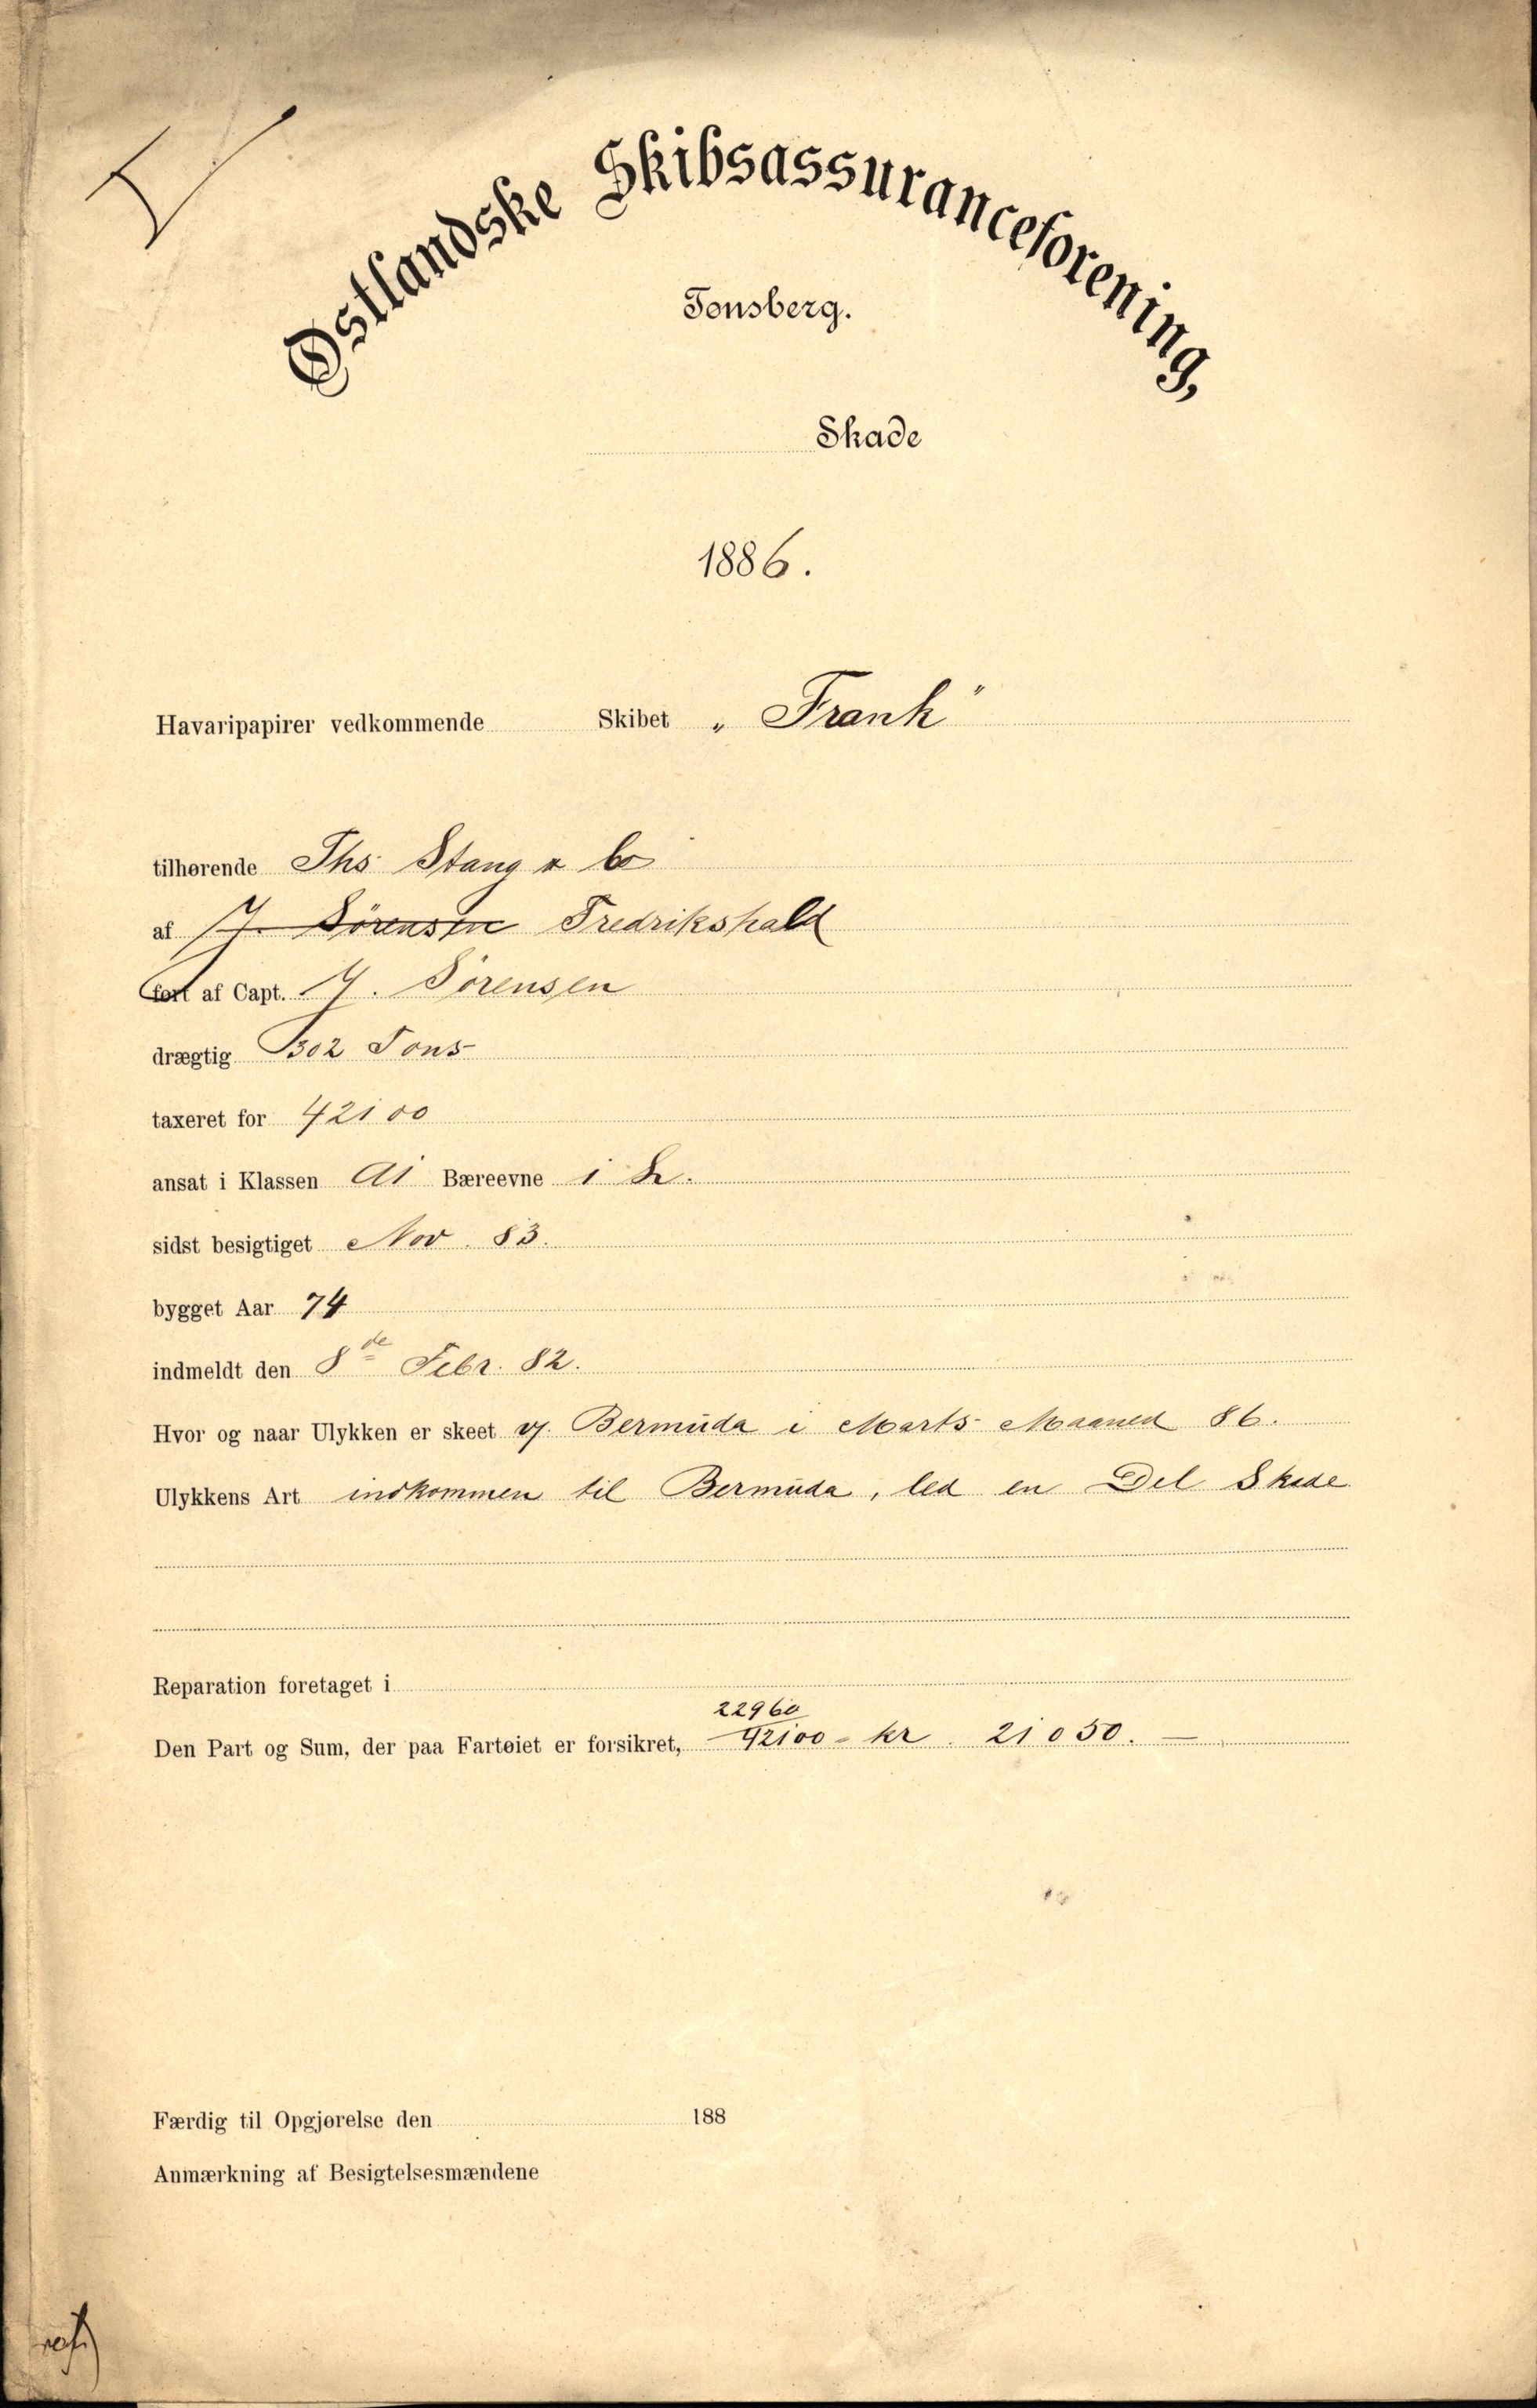 Østlandske Skibsassuranceforening,
Tønsberg.
Skade
1886.
Havaripapirer vedkommende Skibet „Frank"
tilhørende Ths. Stang & Co
af Sørensen Fredrikshald
ført af Capt. Sørensen
drægtig 302 Tons
taxeret for 42100
ansat i Klassen A1 Bæreevne 1
sidst besigtiget Nov. 83.
bygget Aar 74
indmeldt den 8de Febr. 82.
Hvor og naar Ulykken er skeet v/ Bermuda i Marts Maaned 86.
Ulykkens Art indkommen til Bermuda, led en Del Skade
Reparation foretaget i
22960
Den Part og Sum, der paa Fartøiet er forsikret, 42100 = kr. 21050. —
Færdig til Opgjørelse den 188
Anmærkning af Besigtelsesmændene